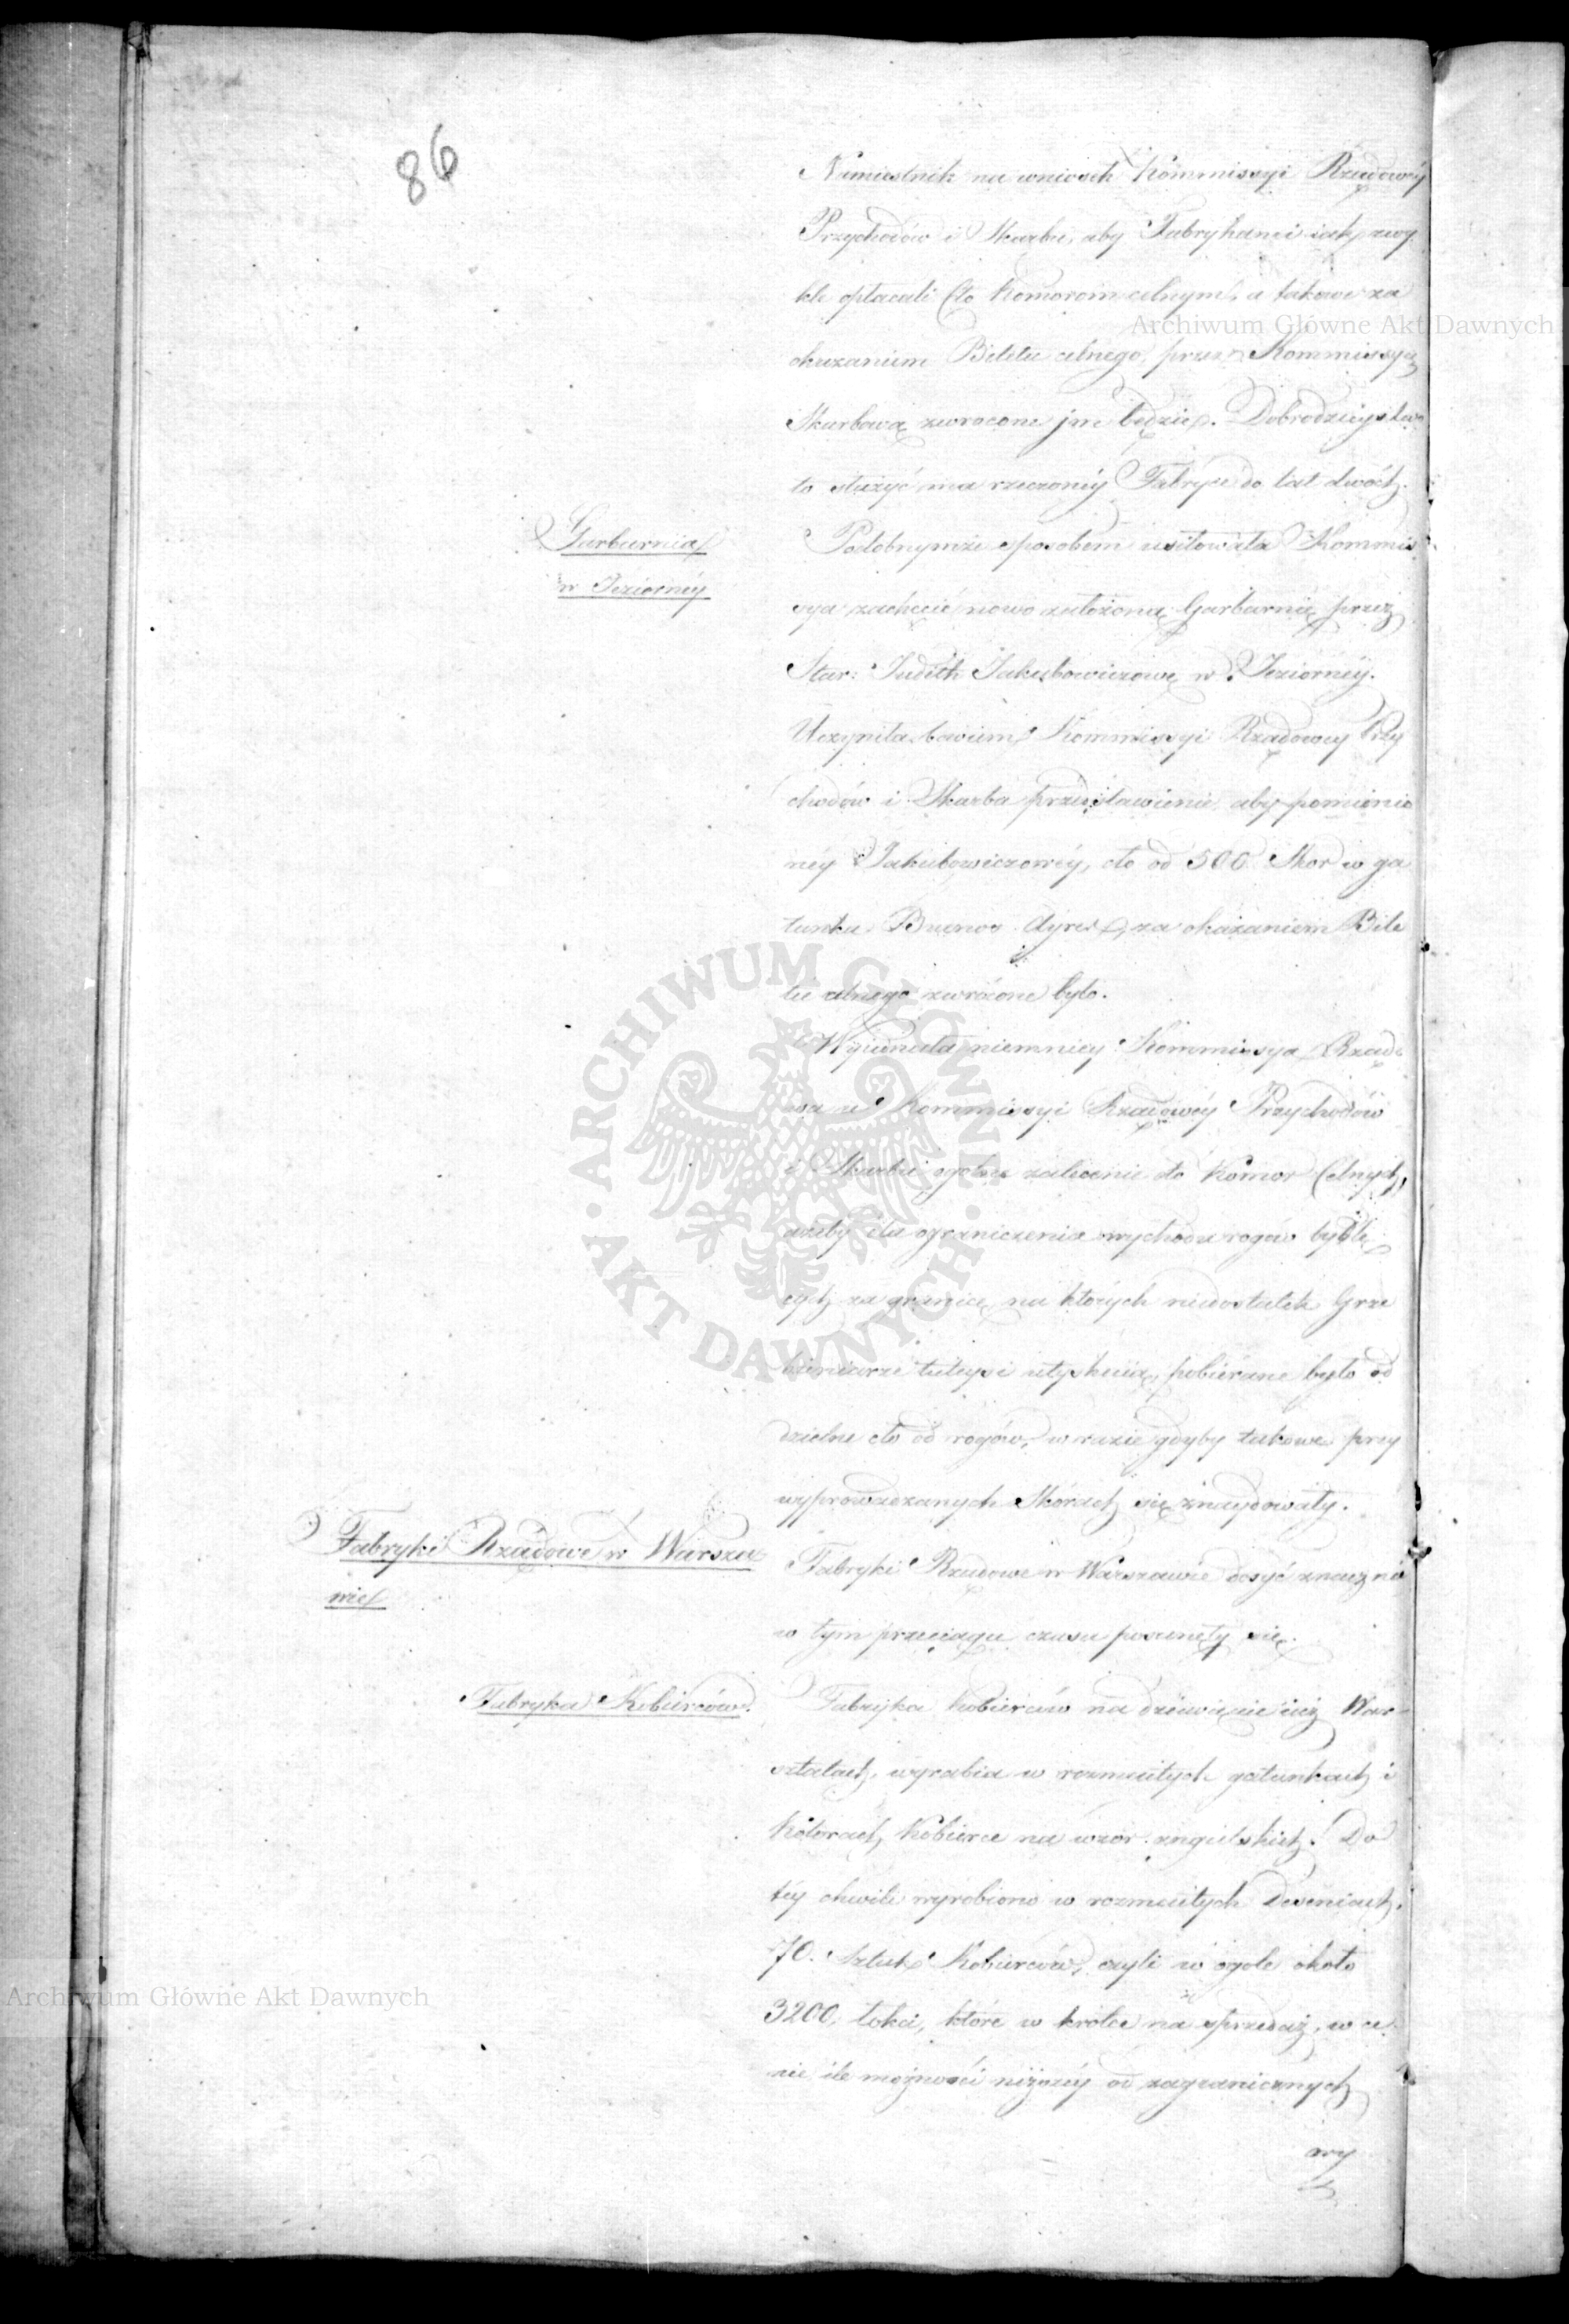 86
Namiestnik na wniosek Kommissyi Rządowéy
Przychodów i Skarbu, aby Fabrykanci jak zwy
kle opłacali Cło Komorom celnym, a takowe za
okazaniem Biletu celnego, przez Kommissyą
Skarbową zwrocone jm będzie. Dobrodzieystwo
to służyć ma rzeczonéy Fabryce do lat dwóch.
Garbarnia
w Jeziornéy
Podobnymże sposobem usiłowała Kommis
sya zachęcić nowo założoną Garbarnię przez
Star: Judith Jakubowiczową w Jeziornéy.
Uczyniła bowiem Kommissyi Rządowey Przy
chodów i Skarbu przedstawienie, aby pomienio
néy Jakubowiczowéy, cło od 500 Skor w ga
tunku Buenos Ayres, za okazaniem Bile
tu celnego zwrócone było.
Wyiednała niemniey Kommissya Rządo
wa u Kommissyi Rządowéy Przychodów
i Skarbu ogolne zalecenie do Komor Celnych,
ażeby dla ograniczenia wychodu rogów bydlę
cych za granicę, na których niedostatek Grze
bieniarze tuteysi utyskuią, pobierane było od
dzielne cło od rogów, w razie gdyby takowe przy
wyprowadzanych Skórach się znaydowały.
Fabryki Rządowe w Warsza
wie
Fabryki Rządowe w Warszawie dosyć znaczną
w tym przeciągu czasu posunęły się.
Fabryka Kobierców.
Fabryka kobierców na dziewięciu iuż War-
sztatach, wyrabia w rozmaitych gatunkach i
kolorach, Kobierce na wzór angielskich. Do
téy chwili wyrobiono w rozmaitych deseniach
70. Sztuk Kobierców, czyli w ogole około
3200. łokci, które w krótce na sprzedaż, w ce
nie ile możności niższéy od zagranicznych
wy
Archiwum Główne Akt Dawnych
Archiwum Główne Akt Dawnych
ARCHIWUM GŁÓWNE · AKT DAWNYCH ·